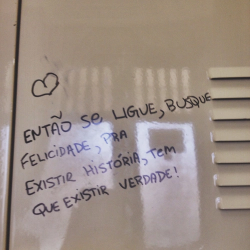 ENTÃO SE LIGUE, BUSQUE
FELICIDADE, PRA
EXISTIR HISTÓRIA, TEM
QUE EXISTIR VERDADE!